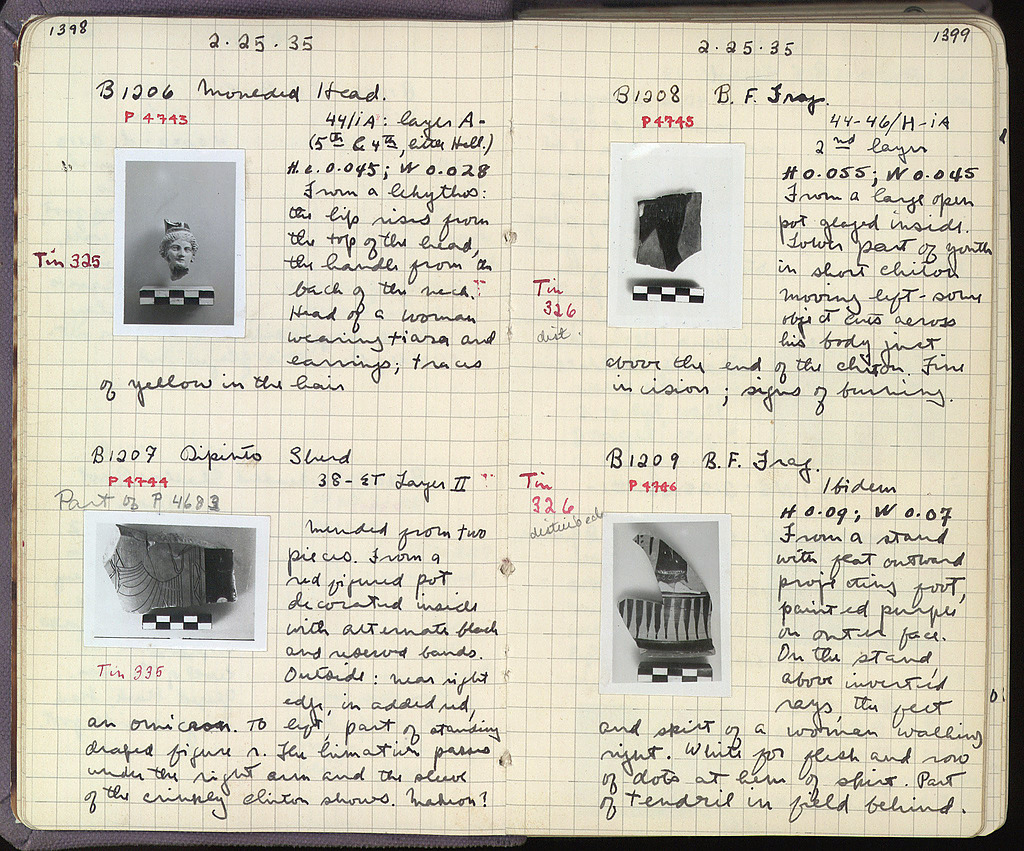 1398
2·25·35
B1206 Moulded Head.
P 4743
44/iA: layer A-
(5th & 4th, later Hell.)
H.c. 0.045; W 0.028
From a lekythos:
the lip rises from
the top of the head,
the handle from the
Tin 325
back of the neck.
Head of a woman
wearing tiara and
earrings; traces
of yellow in the hair
B1207 Dipinto Sherd
P 4744
38-ET Layer II
Part of P 4683
Mended from two
pieces. From a
red figured pot
decorated inside
with alternate black
and reserved bands.
Tin 335
Outside: near right
edge, in added red,
an omicron. To left, part of standing
draped figure r. The himation passes
under the right arm and the sleeve
of the crinkly chiton shows. Makron?
1399
2·25·35
B1208 B.F. Frag.
P 4745
44-46/H-iA
2nd layer
H 0.055; W 0.045
From a large open
pot glazed inside.
Lower part of youth
in short chiton
Tin
326
dist.
moving left - some
object cuts across
his body just
above the end of the chiton. Fine
incision; signs of burning.
B1209 B.F. Frag.
P 4746
Ibidem
Tin
326
distributed
H 0.09; W 0.07
From a stand
with flat outward
projecting foot,
painted purple
on outer face.
On the stand,
above inverted
rays, the feet
and skirt of a woman walking
right. White for flesh and row
of dots at hem of skirt. Part
of tendril in field behind.